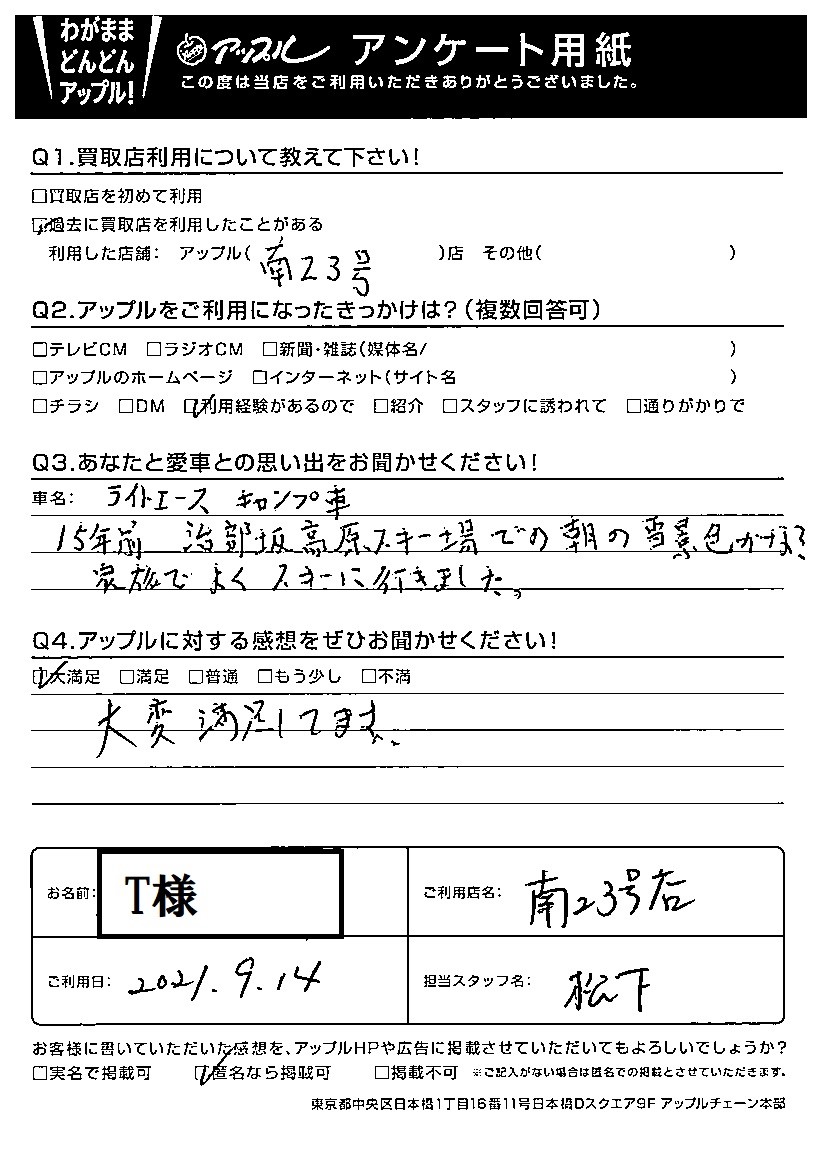 わがまま
どんどん
アップル!
アップル アンケート用紙
この度は当店をご利用いただきありがとうございました。
Q1.買取店利用について教えて下さい!
□買取店を初めて利用
☑過去に買取店を利用したことがある
利用した店舗: アップル(南23号)店 その他( )
Q2.アップルをご利用になったきっかけは?(複数回答可)
□テレビCM □ラジオCM □新聞・雑誌(媒体名/ )
□アップルのホームページ □インターネット(サイト名 )
□チラシ □DM ☑利用経験があるので □紹介 □スタッフに誘われて □通りがかりで
Q3.あなたと愛車との思い出をお聞かせください!
車名: ライトエース キャンプ車
15年前 治部坂高原スキー場での朝の雪景色かな?
家族でよくスキーに行きました。
Q4.アップルに対する感想をぜひお聞かせください!
☑大満足 □満足 □普通 □もう少し □不満
大変満足してます。
お名前: T様
ご利用店名: 南23号店
ご利用日: 2021.9.14
担当スタッフ名: 松下
お客様に書いていただいた感想を、アップルHPや広告に掲載させていただいてもよろしいでしょうか?
□実名で掲載可 ☑匿名なら掲載可 □掲載不可 ※ご記入がない場合は匿名での掲載とさせていただきます。
東京都中央区日本橋1丁目16番11号日本橋Dスクエア9F アップルチェーン本部